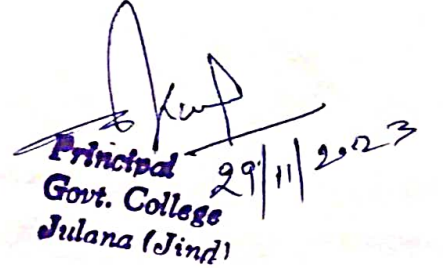 Principal
Govt. College
Julana (Jind)
29/11/2023